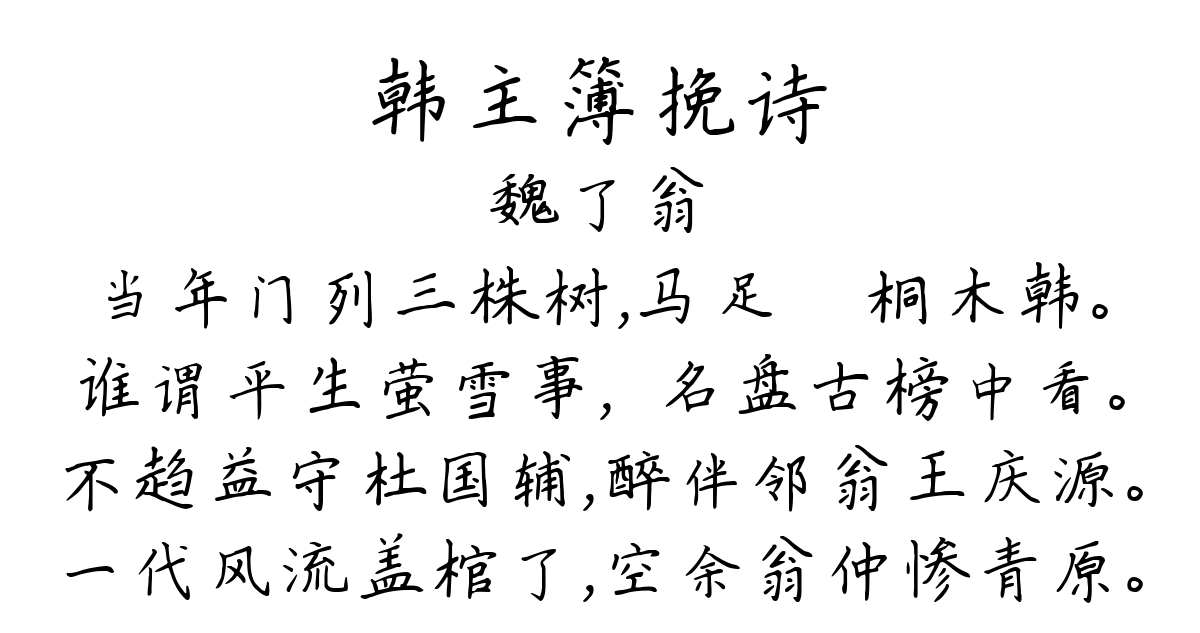 韩主簿挽诗
魏了翁
当年门列三株树,马足 桐木韩。
谁谓平生萤雪事，名盘古榜中看。
不趋益守杜国辅,醉伴邻翁王庆源。
一代风流盖棺了,空余翁仲惨青原。